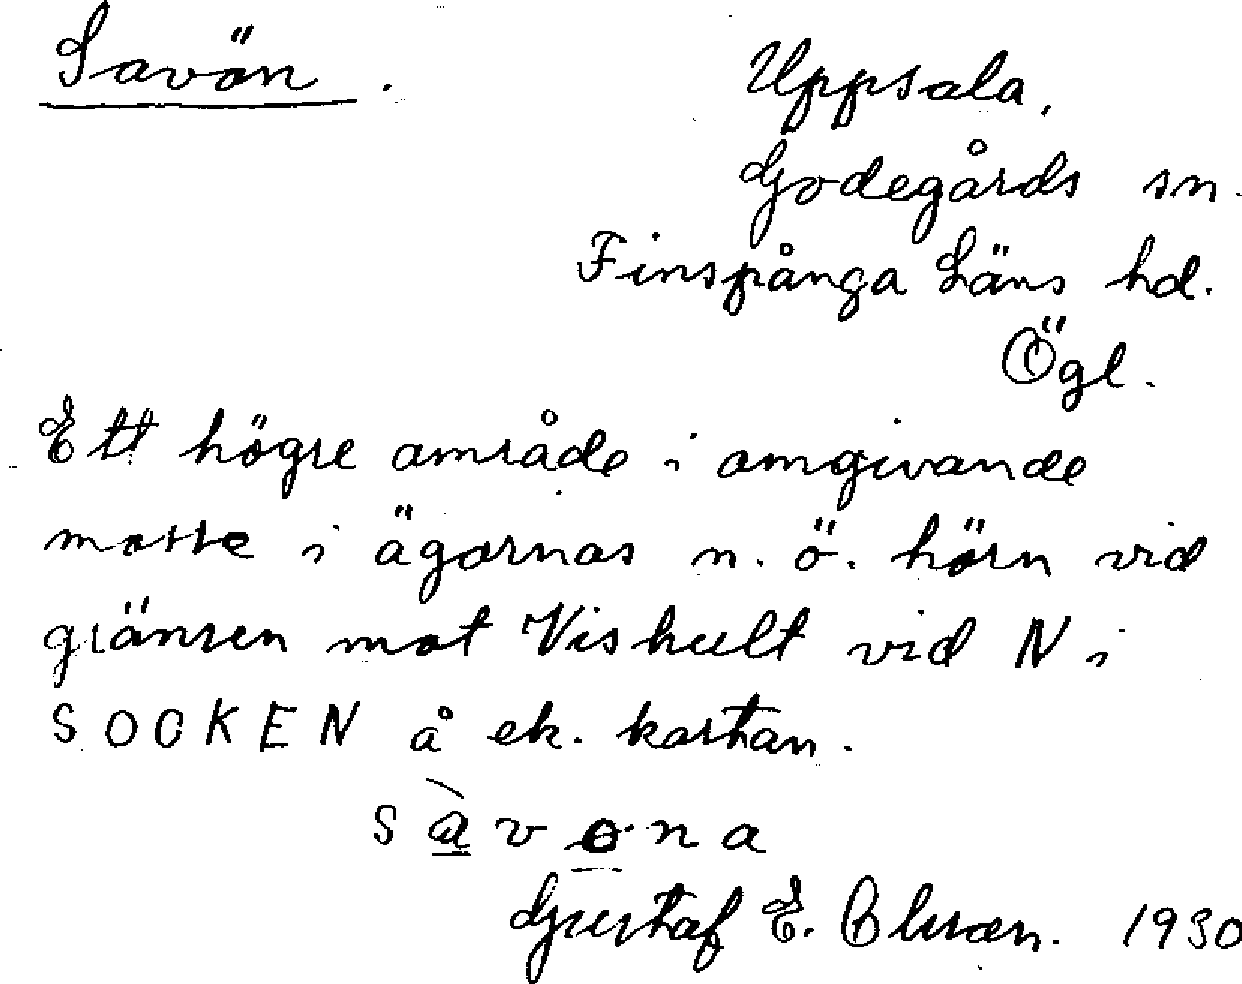 Savön.
Uppsala,
Godegårds sn.
Finspånga Läns hd.
Ögl.
Ett högre område i omgivande
mosse i ägornas n. ö. hörn vid
gränsen mot Vishult vid N i
SOCKEN å ek. kartan.
sàvona
Gustaf E. Olsson. 1930